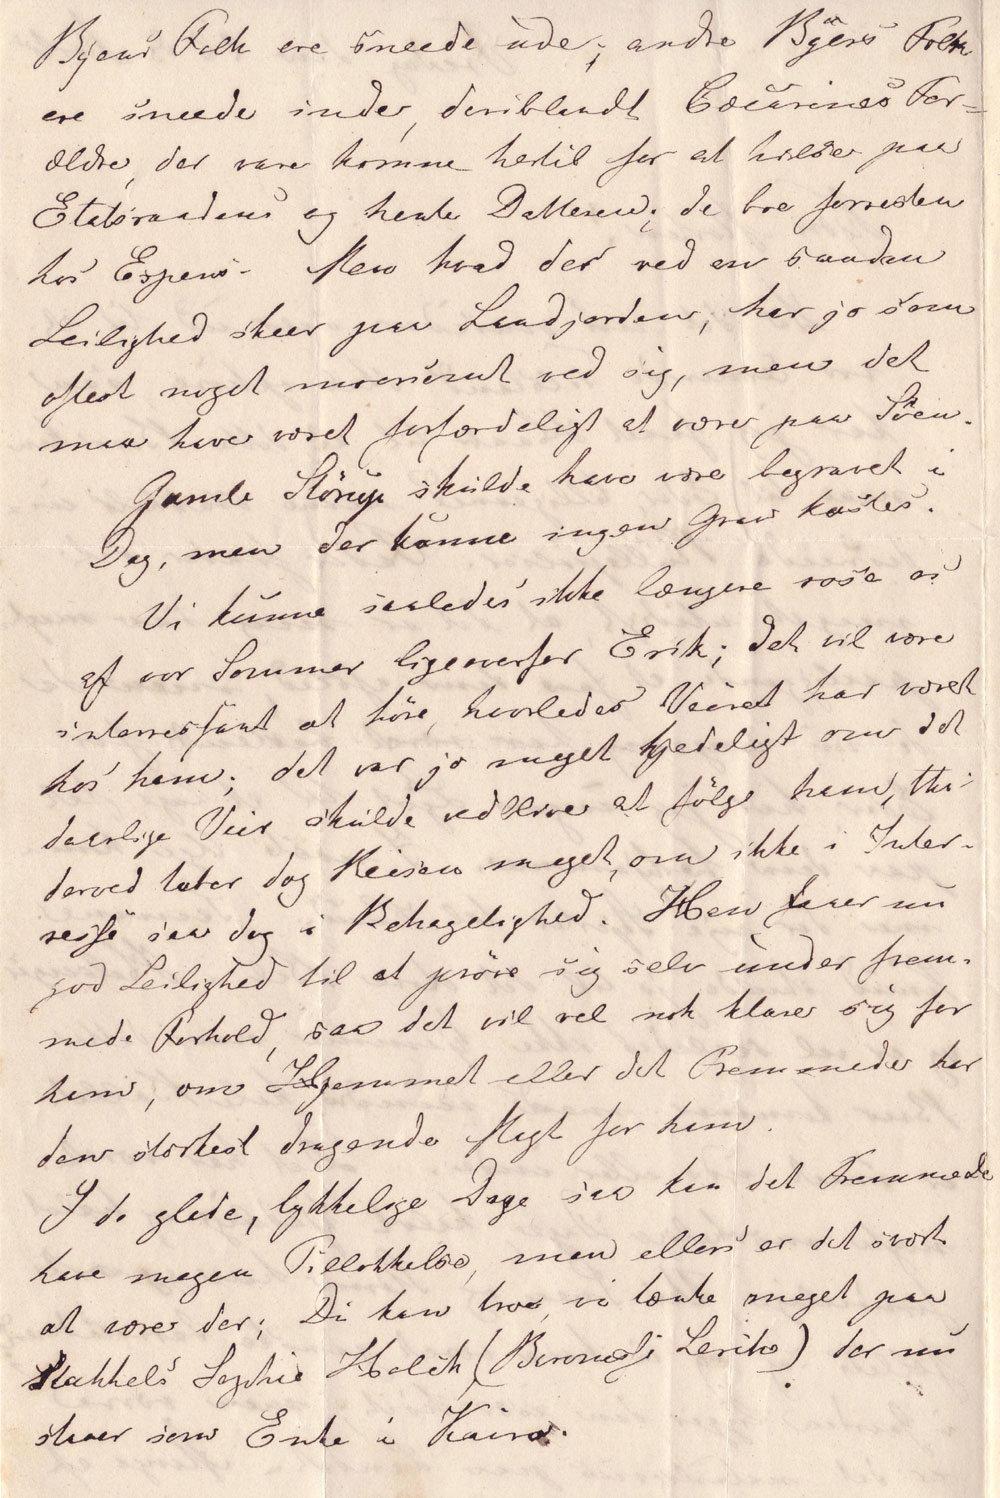 Byens Folk ere sneede ude; andre Byers Folk
ere sneede inde, deriblandt Cæcirines For-
ældre, der vare komne hertil for at hilse paa
Etatsraadens og hente Datteren; de boe forresten
hos Espens - Men hvad der ved en saadan
Leilighed skeer paa Landjorden, har jo som
oftest noget morsomt ved sig, men det
maa have været forfærdeligt at være paa Søen.
Gamle Störup skulde have være begravet i
Dag, men der kunne ingen Grav kastes.
Vi kunne saaledes ikke længere rose os
af vor Sommer ligeoverfor Erik; det vil være
interressant at höre, hvorledes Veiret har været
hos ham; det var jo meget kjedeligt om det
daarlige Veir skulde vedblive at fölge ham, thi
derved taber dog Reisen meget, om ikke i Inter-
resse saa dog i Behagelighed. Han faaer nu
god Leilighed til at pröve sig selv under frem-
mede Forhold, saa det vil vel nok klare sig for
ham, om Hjemmet eller det Fremmede har
den störkest dragende Magt for ham.
I de glade, lykkelige Dage saa kan det Fremmede
have megen Tillokkelse, men ellers er det svært
at være der; Du kan troe, vi tænke meget paa
Stakkels Sophie Holck (Baronesse Lerike) der nu
staaer som Enke i Kairo.